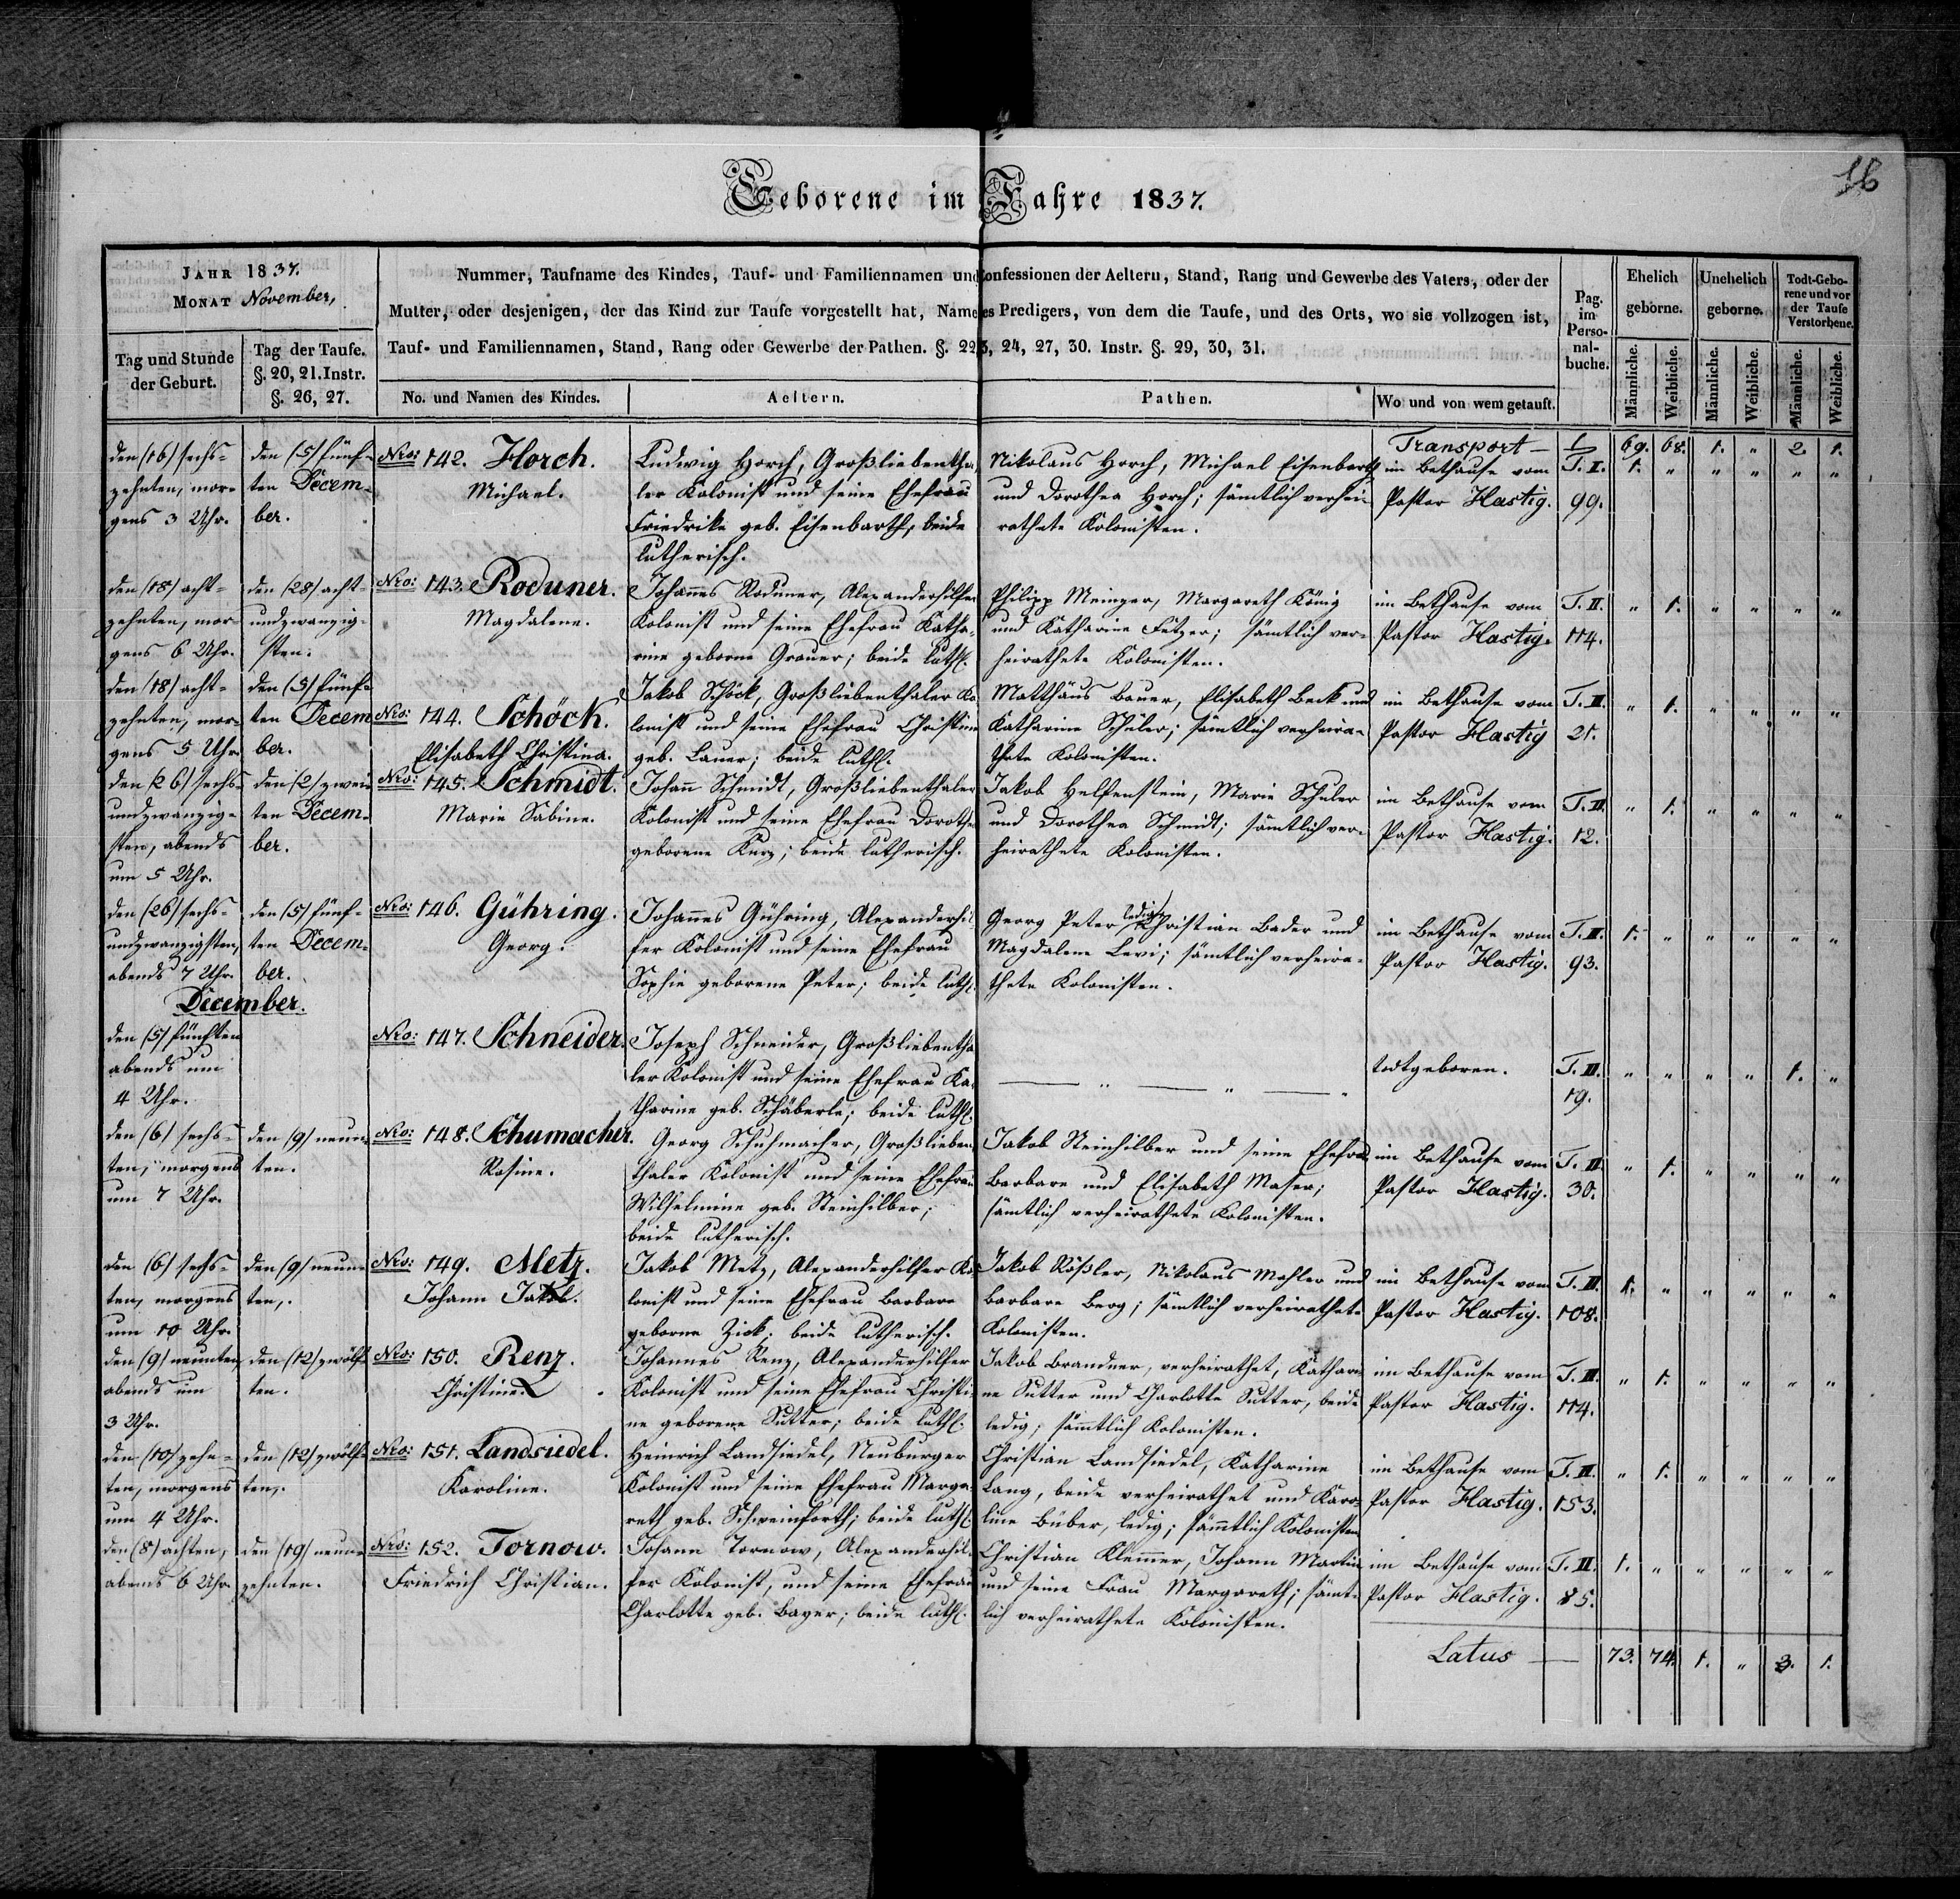 16
Geborene im Jahre 1837.
JAHR 1837.
MONAT November,
Nummer, Taufname des Kindes, Tauf- und Familiennamen und Confessionen der Aeltern, Stand, Rang und Gewerbe des Vaters, oder der
Mutter, oder desjenigen, der das Kind zur Taufe vorgestellt hat, Name des Predigers, von dem die Taufe, und des Orts, wo sie vollzogen ist,
Tauf- und Familiennamen, Stand, Rang oder Gewerbe der Pathen. §. 22, 23, 24, 27, 30. Instr. §. 29, 30, 31.
Tag und Stunde
der Geburt.
Tag der Taufe.
§. 20, 21. Instr.
§. 26, 27.
No. und Namen des Kindes.
Aeltern.
Pathen.
Wo und von wem getauft.
Pag.
im
Perso-
nal-
buche.
Ehelich
geborne.
Unehelich
geborne.
Todt-Gebo-
rene und vor
der Taufe
Verstorbene.
Männliche.
Weibliche.
Männliche.
Weibliche.
Männliche.
Weibliche.
Transport — 69. 68. 1. " 2. 1.
den (16) sechs-
zehnten, mor-
gens 3 Uhr.
den (5) fünf-
ten Decem-
ber.
Nro: 142. Horch.
Michael.
Ludwig Horch, Großliebentha-
ler Kolonist und seine Ehefrau
Friedrike geb. Eisenbarth, beide
lutherisch.
Nikolaus Horch, Michael Eisenbarth
und Dorothea Horch; sämtlich verhei-
rathete Kolonisten.
im Bethause vom
Pastor Hastig.
T. I.
99.
1. " " " " "
den (18) acht-
zehnten, mor-
gens 6 Uhr.
den (28) acht-
undzwanzig-
sten.
Nro: 143. Roduner.
Magdalene.
Johannes Roduner, Alexanderhilfer
Kolonist und seine Ehefrau Katha-
rine geborne Grauer; beide luth.
Philipp Meinzer, Margareth König
und Katharine Fetzer; sämtlich ver-
heirathete Kolonisten.
im Bethause vom
Pastor Hastig.
T. II.
114.
" 1. " " " "
den (18) acht-
zehnten, mor-
gens 5 Uhr.
den (5) fünf-
ten Decem-
ber.
Nro: 144. Schöck.
Elisabeth Christina.
Jakob Schöck, Großliebenthaler Ko-
lonist und seine Ehefrau Christine
geb. Lauer; beide luth.
Matthäus Bauer, Elisabeth Beck und
Katharine Schüler; sämtlich verheira-
thete Kolonisten.
im Bethause vom
Pastor Hastig
T. III.
21.
" 1. " " " "
den (26) sechs-
undzwanzig-
sten, abends
um 5 Uhr.
den (2) zwei-
ten Decem-
ber.
Nro: 145. Schmidt.
Marie Sabine.
Johann Schmidt, Großliebenthaler
Kolonist und seine Ehefrau Dorothea
geborene Kurz; beide lutherisch.
Jakob Helfenstein, Marie Schüler
und Dorothea Schmidt; sämtlich ver-
heirathete Kolonisten.
im Bethause vom
Pastor Hastig.
T. III.
12.
" 1. " " " "
den (26) sechs-
undzwanzigsten,
abends 7 Uhr.
den (5) fünf-
ten Decem-
ber.
Nro: 146. Gühring.
Georg.
Johannes Gühring, Alexanderhil-
fer Kolonist und seine Ehefrau
Sophie geborene Peter; beide luth.
Georg Peter ledig, Christian Bader und
Magdalene Levi; sämtlich verheira-
thete Kolonisten.
im Bethause vom
Pastor Hastig.
T. II.
93.
1. " " " " "
December.
den (5) fünften
abends um
4 Uhr.
Nro: 147. Schneider.
Joseph Schneider, Großliebentha-
ler Kolonist und seine Ehefrau Ka-
tharine geb. Schäberle; beide luth.
— " — " — "
todtgeboren.
T. III.
19.
" " " " 1. "
den (6) sechs-
ten, morgens
um 7 Uhr.
den (9) neun-
ten.
Nro: 148. Schumacher.
Rosine.
Georg Schuhmacher, Großlieben-
thaler Kolonist und seine Ehefrau
Wilhelmine geb. Steinhilber;
beide lutherisch.
Jakob Steinhilber und seine Ehefrau
Barbara und Elisabeth Maser;
sämtlich verheirathete Kolonisten.
im Bethause vom
Pastor Hastig.
T. III.
30.
" 1. " " " "
den (6) sechs-
ten, morgens
um 10 Uhr.
den (9) neun-
ten.
Nro: 149. Metz.
Johann Jakob.
Jakob Metz, Alexanderhilfer Ko-
lonist und seine Ehefrau Barbara
geborne Zick; beide lutherisch.
Jakob Rößler, Nikolaus Mahler und
Barbara Berg; sämtlich verheirathete
Kolonisten.
im Bethause vom
Pastor Hastig.
T. II.
108.
1. " " " " "
den (9) neunten
abends um
3 Uhr.
den (12) zwölf-
ten.
Nro: 150. Renz.
Christine.
Johannes Renz, Alexanderhilfer
Kolonist und seine Ehefrau Christi-
ne geborene Sutter; beide luth.
Jakob Brandner, verheirathet, Kathari-
ne Sutter und Charlotte Sutter, beide
ledig; sämmtlich Kolonisten.
im Bethause vom
Pastor Hastig.
T. II.
114.
" 1. " " " "
den (10) zehn-
ten, morgens
um 4 Uhr.
den (12) zwölf-
ten.
Nro: 151. Landsiedel.
Karoline.
Heinrich Landsiedel, Neuburger
Kolonist und seine Ehefrau Marga-
reth geb. Schweinforth; beide luth.
Christian Landsiedel, Katharine
Lang, beide verheirathet und Karo-
line Büber, ledig; sämmtlich Kolonisten
im Bethause vom
Pastor Hastig.
T. III.
153.
" 1. " " " "
den (8) achten,
abends 6 Uhr.
den (19) neun-
zehnten.
Nro: 152. Tornow.
Friedrich Christian.
Johann Tornow, Alexanderhil-
fer Kolonist, und seine Ehefrau
Charlotte geb. Bayer; beide luth.
Christian Klemmer, Johann Martin
und seine Frau Margareth; sämt-
lich verheirathete Kolonisten.
im Bethause vom
Pastor Hastig.
T. II.
85.
1. " " " " "
Latus — 73. 74. 1. " 3. 1.